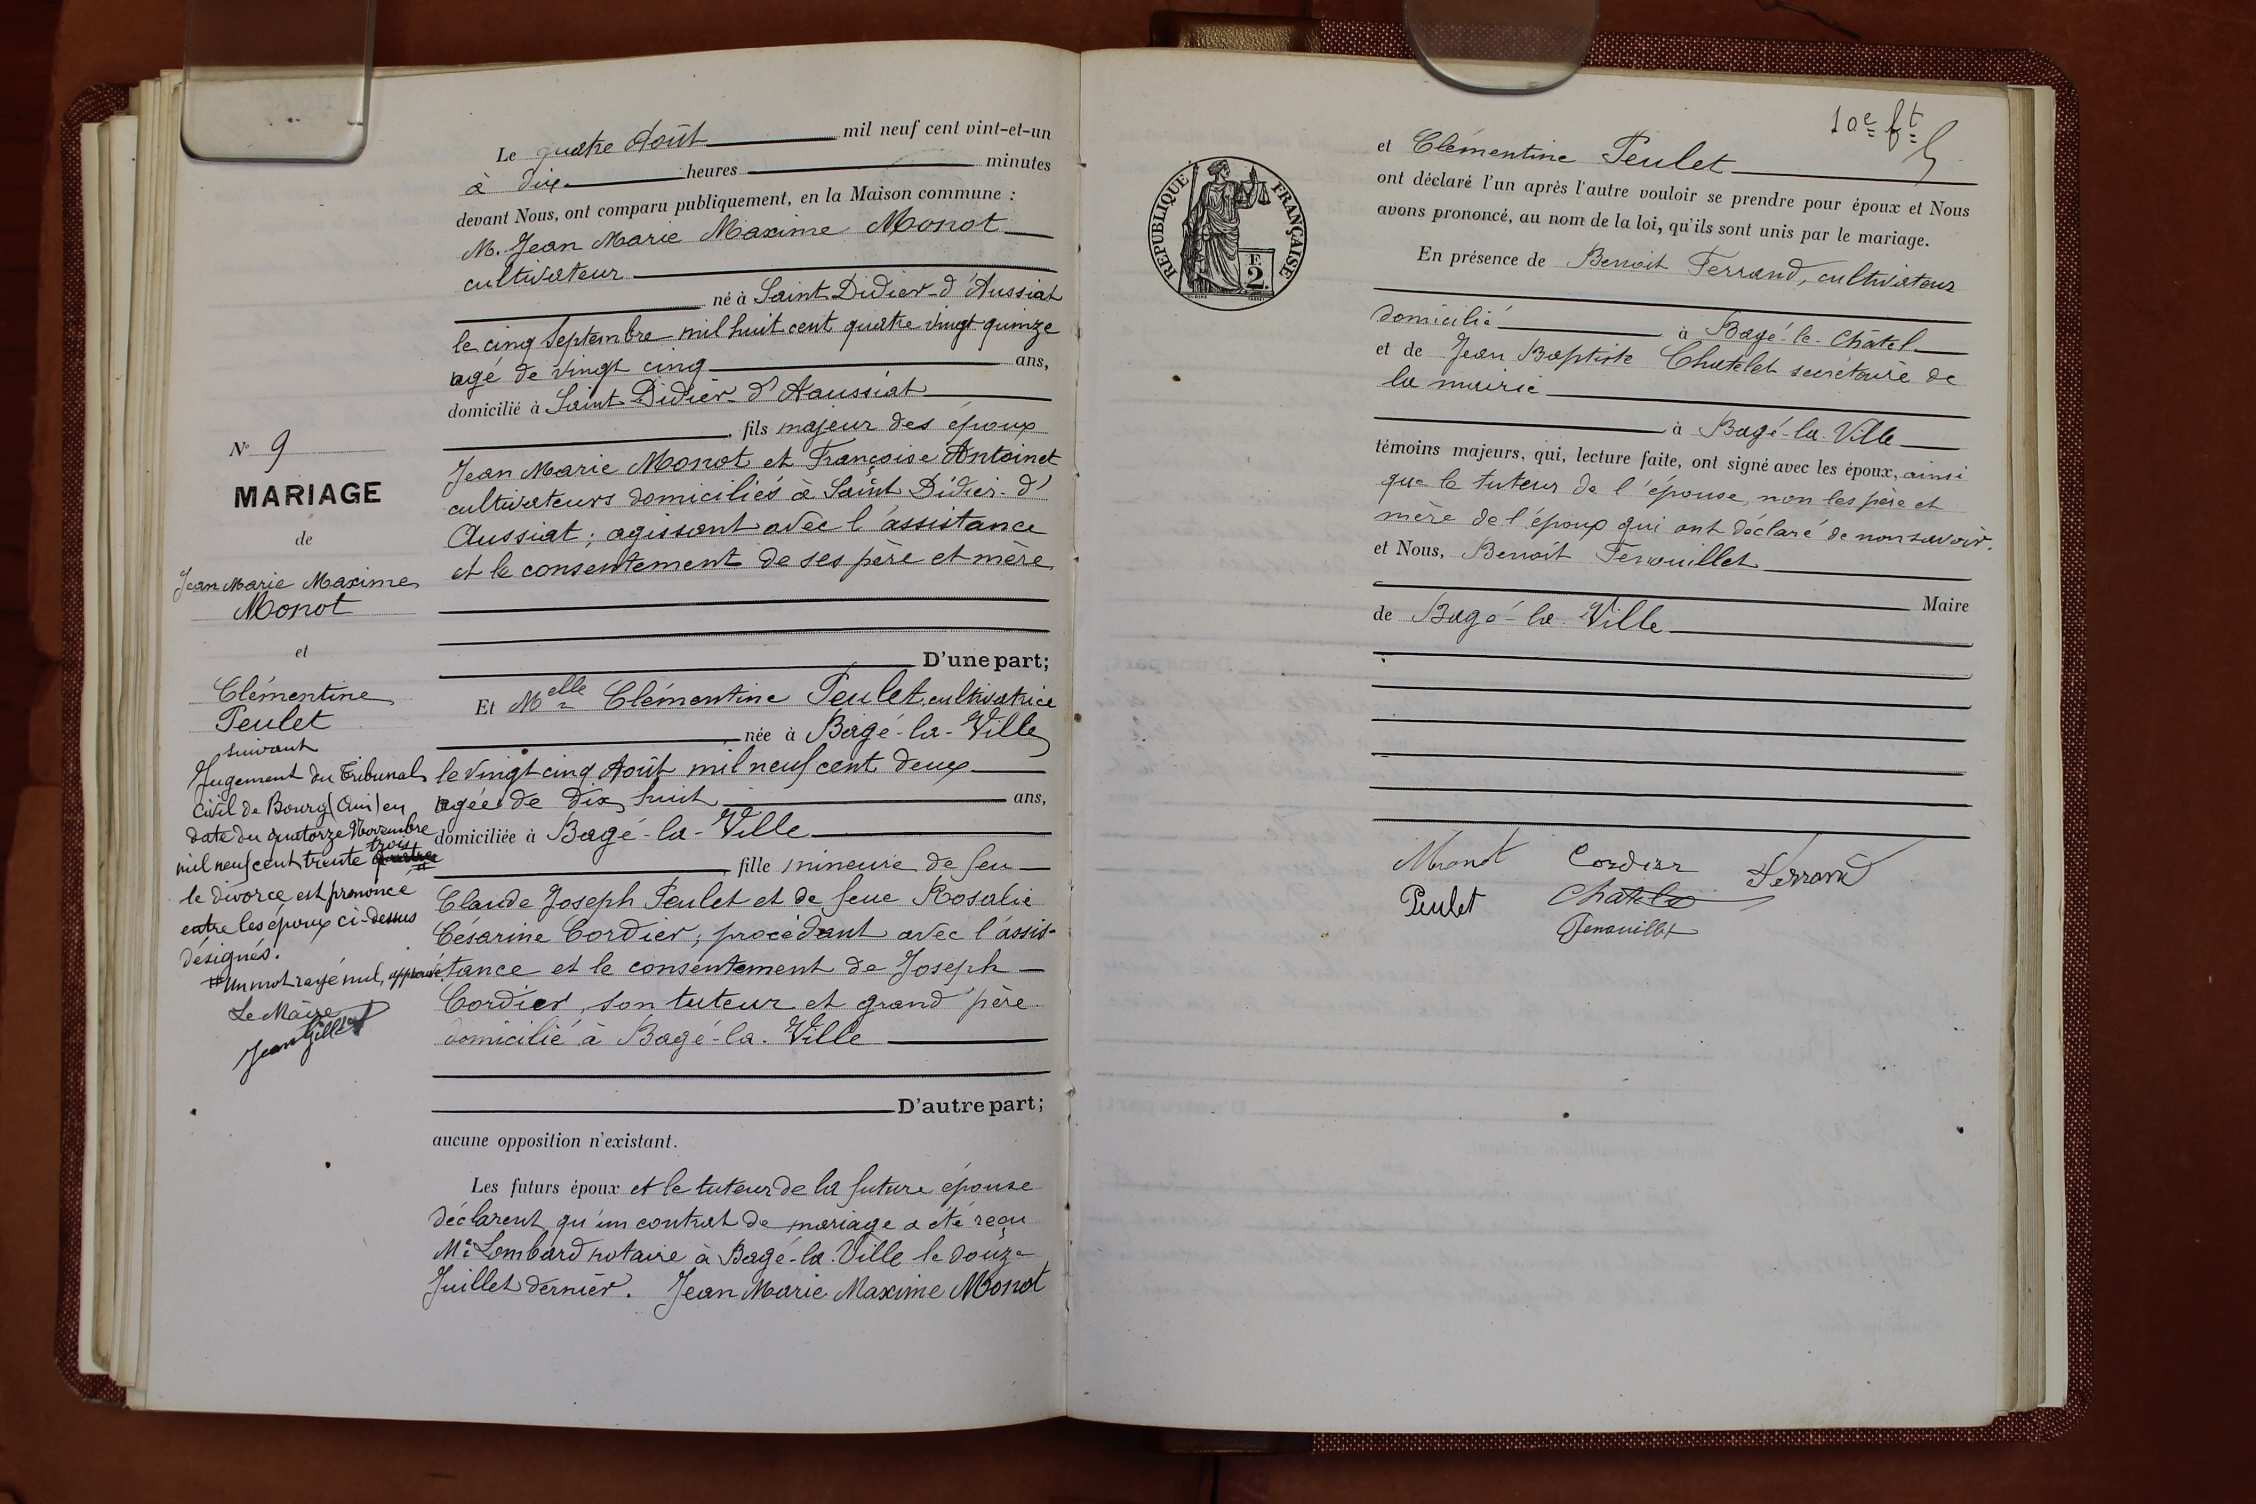 Le quatre Août mil neuf cent vint-et-un
à dix heures minutes
devant Nous, ont comparu publiquement, en la Maison commune :
M. Jean Marie Maxime Monot
cultivateur
né à Saint Didier-d'Aussiat
le cinq Septembre mil huit cent quatre vingt quinze
agé de vingt cinq ans,
domicilié à Saint Didier-d'Aaussiat
, fils majeur des époux
Jean Marie Monot et Françoise Antoinet
cultivateurs domiciliés à Saint Didier-d'
Aussiat ; agissant avec l'assistance
et le consentement de ses père et mère
D'une part;
Et Melle Clémentine Peulet, cultivatrice
née à Bâgé-la-Ville
le vingt cinq Août mil neuf cent deux
agée de dix huit ans,
domiciliée à Bagé-la-Ville
, fille mineure de feu
Claude Joseph Peulet et de feue Rosalie
Césarine Cordier ; procédant avec l'assis-
tance et le consentement de Joseph
Cordier, son tuteur et grand père
domicilié à Bagé-la-Ville
D'autre part;
aucune opposition n'existant.
Les futurs époux et le tuteur de la future épouse
déclarent qu'un contrat de mariage a été reçu
Me Lombard notaire à Bagé-la-Ville le douze
Juillet dernier. Jean Marie Maxime Monot
N° 9
MARIAGE
de
Jean Marie Maxime
Monot
et
Clémentine
Peulet
suivant
Jugement du Tribunal
civil de Bourg (Ain) en
date du quatorze Novembre
trois
mil neuf cent trente quatre #
le divorce est prononcé
entre les époux ci-dessus
désignés.
# Un mot rayé nul, approuvé
Le Maire
Jean Gillet
10e ft
RÉPUBLIQUE FRANÇAISE
F.
2.
et Clémentine Peulet
ont déclaré l'un après l'autre vouloir se prendre pour époux et Nous
avons prononcé, au nom de la loi, qu'ils sont unis par le mariage.
En présence de Benoit Ferrand, cultivateur
domicilié à Bagé-le-Châtel
et de Jean Baptiste Chatelet secrétaire de
la mairie
à Bagé-la-Ville
témoins majeurs, qui, lecture faite, ont signé avec les époux, ainsi
que le tuteur de l'épouse, non les père et
mère de l'époux qui ont déclaré de non savoir.
et Nous, Benoit Fenouillet
Maire
de Bagé-la-Ville
Monot Cordier Ferrand
Peulet Chatelet
Fenouillet